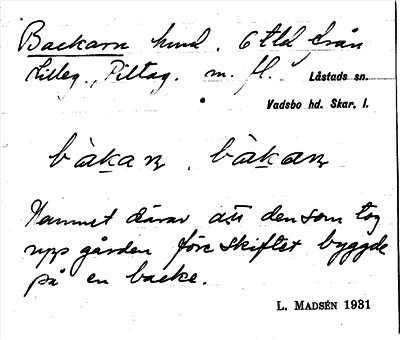 Backarn hmd. 6 tld från
Lilleg., Piltag. m. fl. Låstads sn.
Vadsbo hd. Skar. l.
bàkaɳ bàkaɳ
Namnet därav att den som tog
upp gården före skiftet byggde
på en backe.
L. MADSÉN 1931